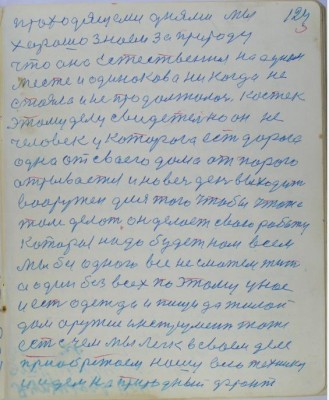 проходящеми днями мы 124
хорошо знаем за природу
что она естествення на одном
месте и одинакова никогда не
стояла и не продолжалась
этому делу свидетел но он не
человек у которога есть дорога
одна от своего дома от порога
отрывается и новеч ден выходит
вооружен для того чтобы тоже
тоже делат он делает свою работу
которая надо будет нам всем
мы без одного все не сможем жит
а один без всех поэтому у нас
и ест одежда и пища да жилой
дом оружие инструмент тоже
ест с чем мы легк в своем деле
приобретаем нашу всю технику
и идем на природный фронт